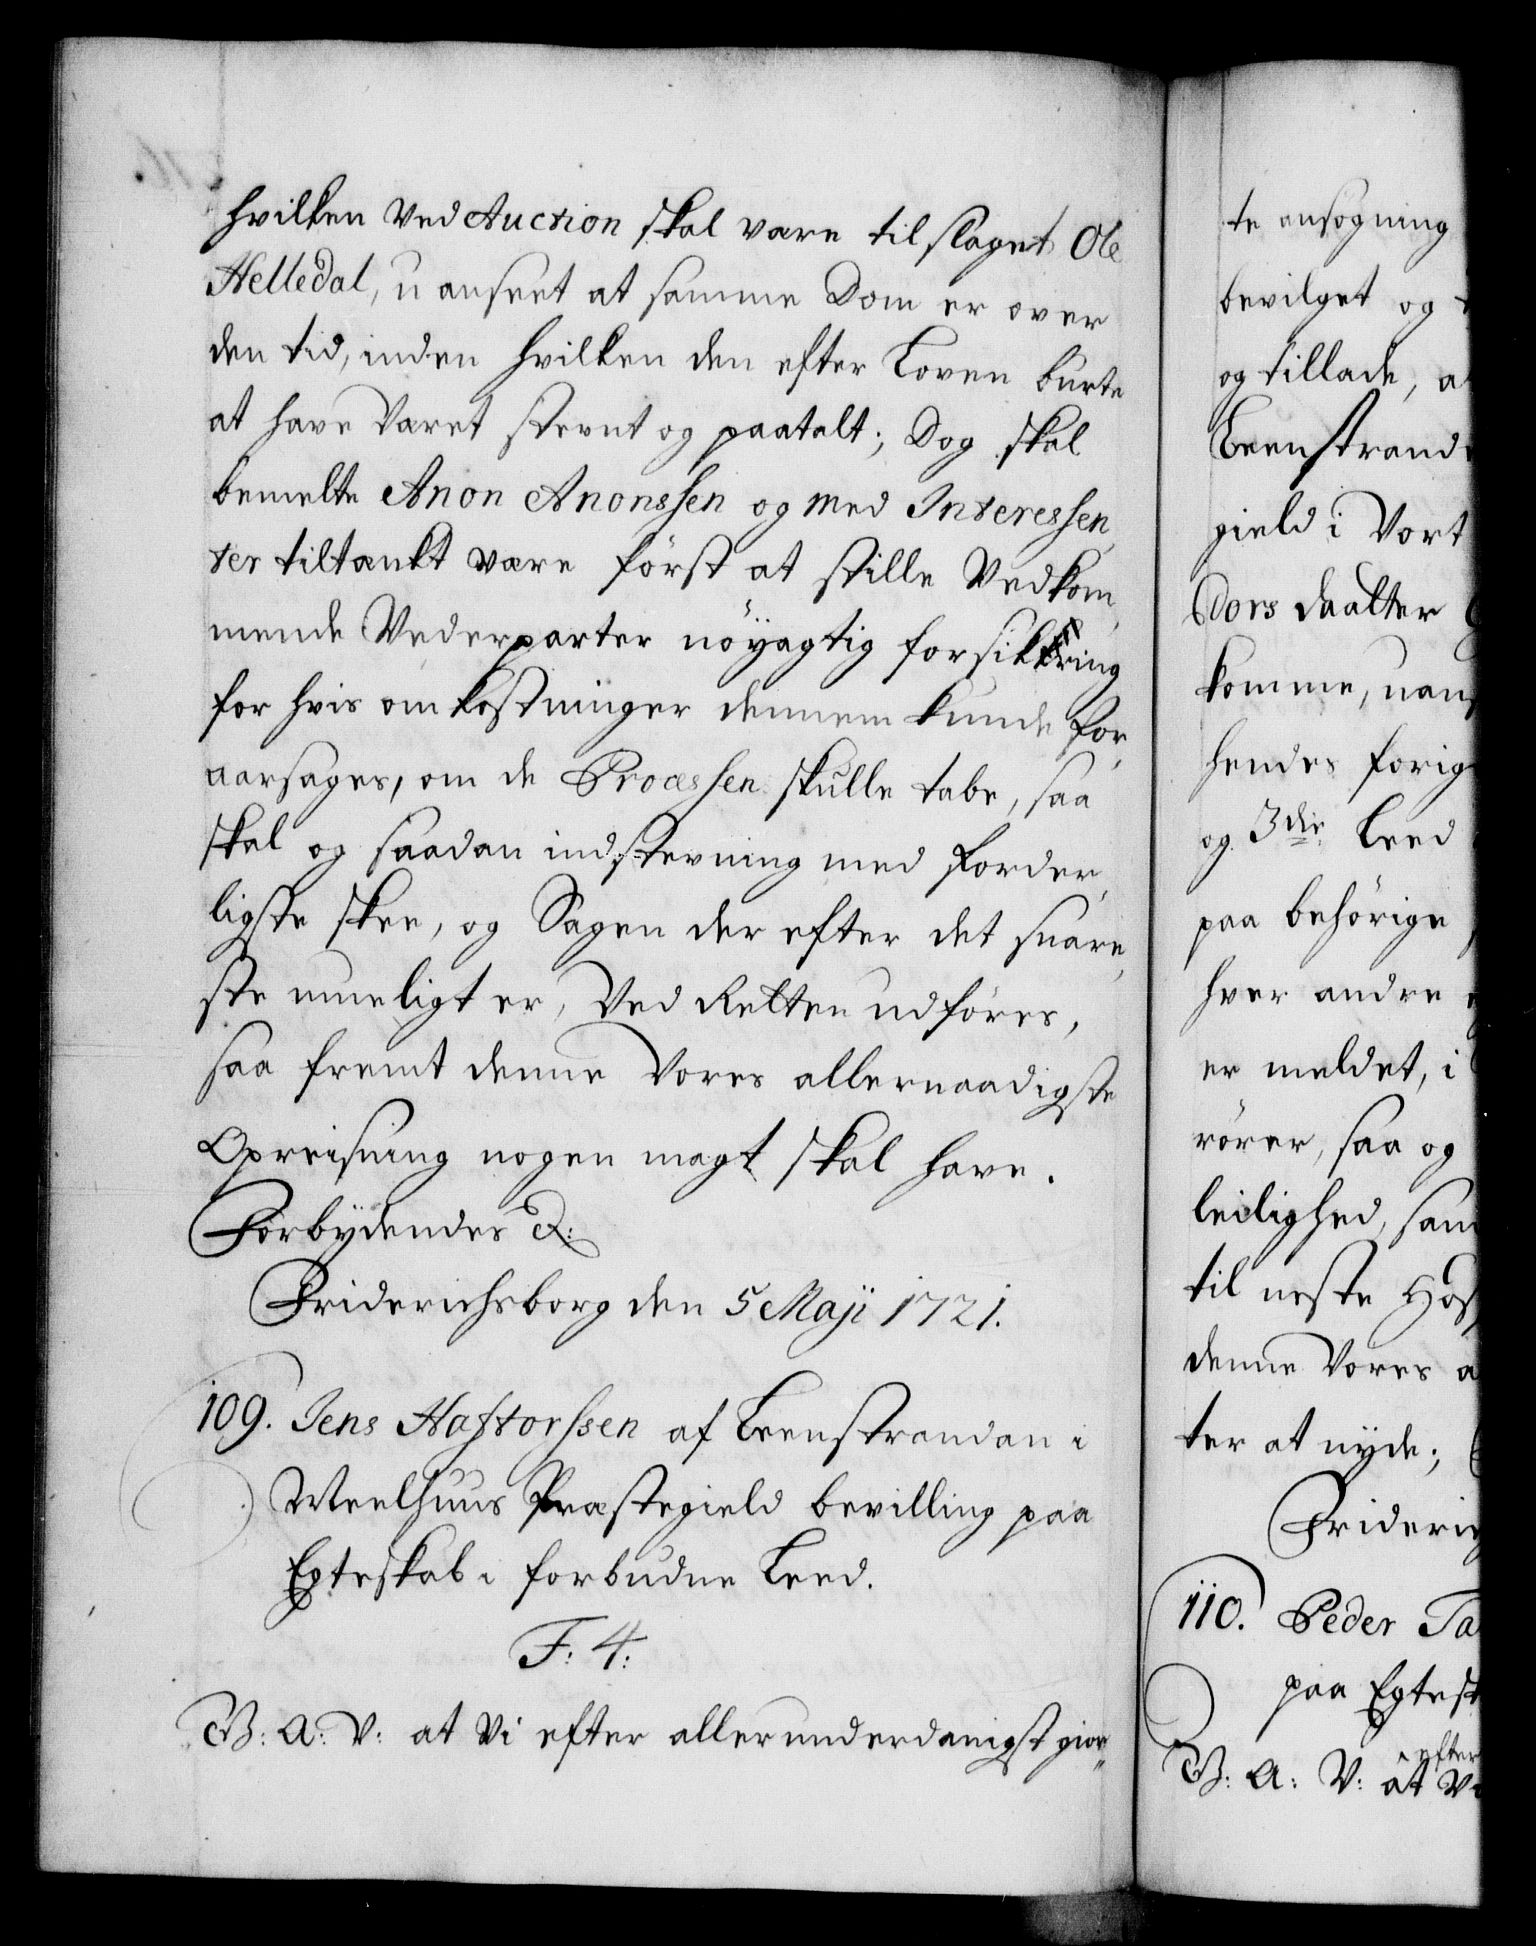 hvilken ved Auction skal være tilslaget Ole
Helledal, u anseet at samme Dom er over
den tid, inden hvilken den efter Loven burte
at have været stevnt og paatalt; Dog skal
bemelte Anon Anonssen og Med Interessen,
ter tiltænkt være först at stille Vedkom,
mende Vederparter nöyagtig forsikring
for hvis omkostninger dennem kunde for,
aarsages, om de Processen skulle tabe, saa
skal og saadan indstevning med forder,
ligste skee, og Sagen der efter det snare,
ste mueligt er, ved Retten udföres,
saa fremt denne Vores allernaadigste
Opreisning nogen magt skal have.
Forbydendes &:
Friderichsborg den 5 Maji 1721.
109. Jens Haftorssen af Leenstrandan i
Meelhuus Præstegield bevilling paa
Egteskab i forbudne Leed.
F: 4:
V: A: V: at Vi efter allerunderdanigst gior,,
te ansøgning
bevilget og
og tillade, at
Leenstrand
gield i Vort
Dors daatter
komme, uans
hendes forig
og 3die Leed
paa behörige
hver andre
er meldet, i
rörer, saa og
leilighed, sam
til neste Hos
denne Vores a
ter at nyde;
Friderich
110. Peder Ta
paa Egtesk
efter
V: A: V: at Vi